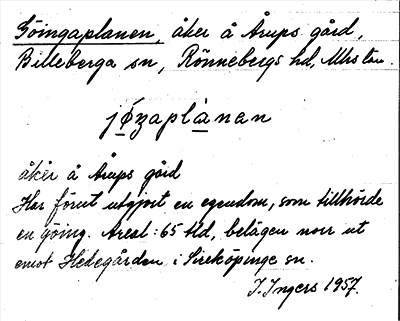 Göingaplanen, åker å Årups gård,
Billeberga sn, Rönnebergs hd, Mhs län.
jǿzaplànan
åker å Årups gård
Har förut utgjort en egendom, som tillhörde
en göing. Areal: 65 tld, belägen norr ut
emot Hedegården i Sireköpinge sn.
I. Ingers 1957.